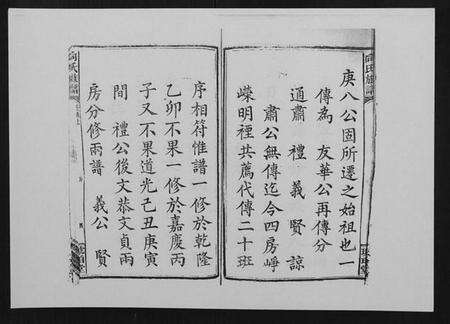 庚八公固所遷之始祖也一
傳為 友華公再傳分
通肅 禮 義 賢 諒
肅公無傳迄今四房崢
嶸明裡共薦代傳二十班
序相符惟譜一修於乾隆
乙卯不果一修於嘉慶丙
子又不果道光己丑庚寅
間 禮公後文恭文貞兩
房分修兩譜 義公 賢
向氏族譜